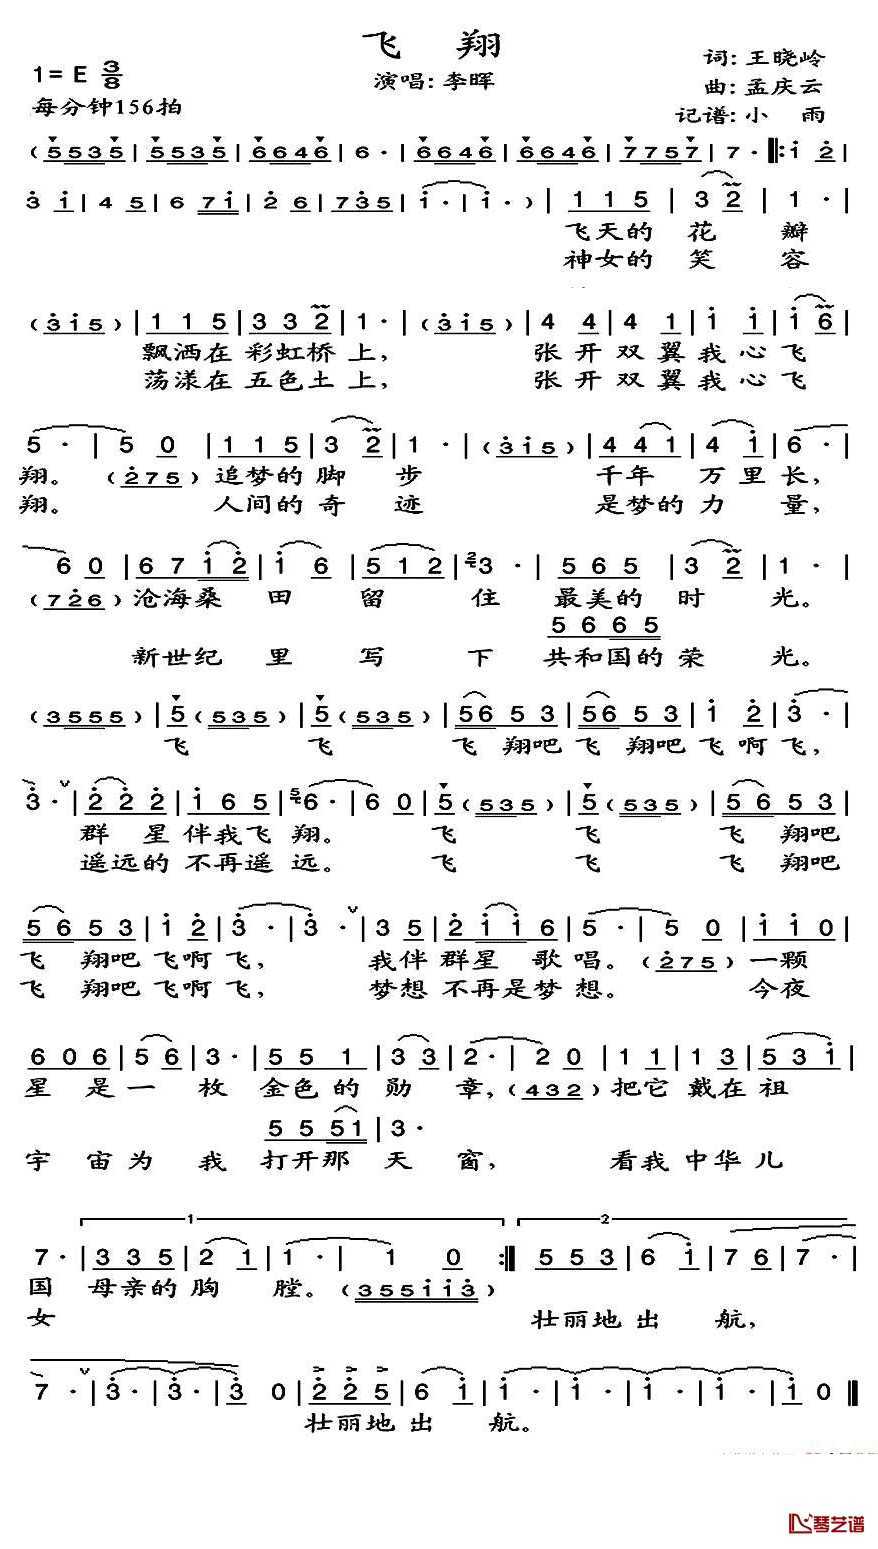 飞 翔
1= E 3/8
演唱: 李晖
词: 王晓岭
曲: 孟庆云
每分钟156拍
记谱: 小 雨
( 5535 | 5535 | 6646 | 6 · | 6646 | 6646 | 7757 | 7 · ‖: i 2 |
3 i | 4 5 | 6 7 i | 2 6 | 7 3 5 | i · | i · ) | 1 1 5 | 3 2 | 1 · |
飞天的 花 瓣
神女的 笑 容
( 3 i 5 ) | 1 1 5 | 3 3 2 | 1 · | ( 3 i 5 ) | 4 4 | 4 1 | i i | i 6 |
飘洒在 彩虹桥 上, 张 开 双 翼 我 心 飞
荡漾在 五色土 上, 张 开 双 翼 我 心 飞
5 · | 5 0 | 1 1 5 | 3 2 | 1 · | ( 3 i 5 ) | 4 4 1 | 4 i | 6 · |
翔。 ( 2 7 5 ) 追梦的 脚 步 千年 万 里 长,
翔。 人间的 奇 迹 是梦的 力 量,
6 0 | 6 7 i 2 | i 6 | 5 1 2 | 2 3 · | 5 6 5 | 3 2 | 1 · |
( 7 2 6 ) 沧海桑 田 留 住 最美的 时 光。
5 6 6 5
新世纪 里 写 下 共和国的 荣 光。
( 3 5 5 5 ) | 5 ( 5 3 5 ) | 5 ( 5 3 5 ) | 5 6 5 3 | 5 6 5 3 | i 2 | 3 · |
飞 飞 飞 翔吧 飞 翔吧 飞 啊 飞,
3 · | 2 2 2 | i 6 5 | 5 6 · | 6 0 | 5 ( 5 3 5 ) | 5 ( 5 3 5 ) | 5 6 5 3 |
群 星 伴我飞 翔。 飞 飞 飞 翔吧
遥远的 不再遥 远。 飞 飞 飞 翔吧
5 6 5 3 | i 2 | 3 · | 3 · | 3 5 | 2 i i 6 | 5 · | 5 0 | i i 0 |
飞 翔吧 飞啊 飞, 我伴 群星 歌 唱。 ( 2 7 5 ) 一颗
飞 翔吧 飞啊 飞, 梦想 不再是梦 想。 今夜
6 0 6 | 5 6 | 3 · | 5 5 1 | 3 3 | 2 · | 2 0 | 1 1 | 1 3 | 5 3 i |
星 是 一 枚 金色 的 勋 章, ( 4 3 2 ) 把它 戴在 祖
5 5 5 1 | 3 ·
宇 宙 为 我 打开那 天 窗, 看我 中华 儿
1 2
7 · | 3 3 5 | 2 1 | 1 · | 1 0 :‖ 5 5 3 | 6 i | 7 6 | 7 · |
国 母亲的 胸 膛。 ( 3 5 5 i i 3 )
女 壮丽地 出 航,
7 · | 3 · | 3 · | 3 0 | 2 2 5 | 6 i | i · | i · | i · | i · | i 0 ‖
壮丽地 出 航。
琴艺谱